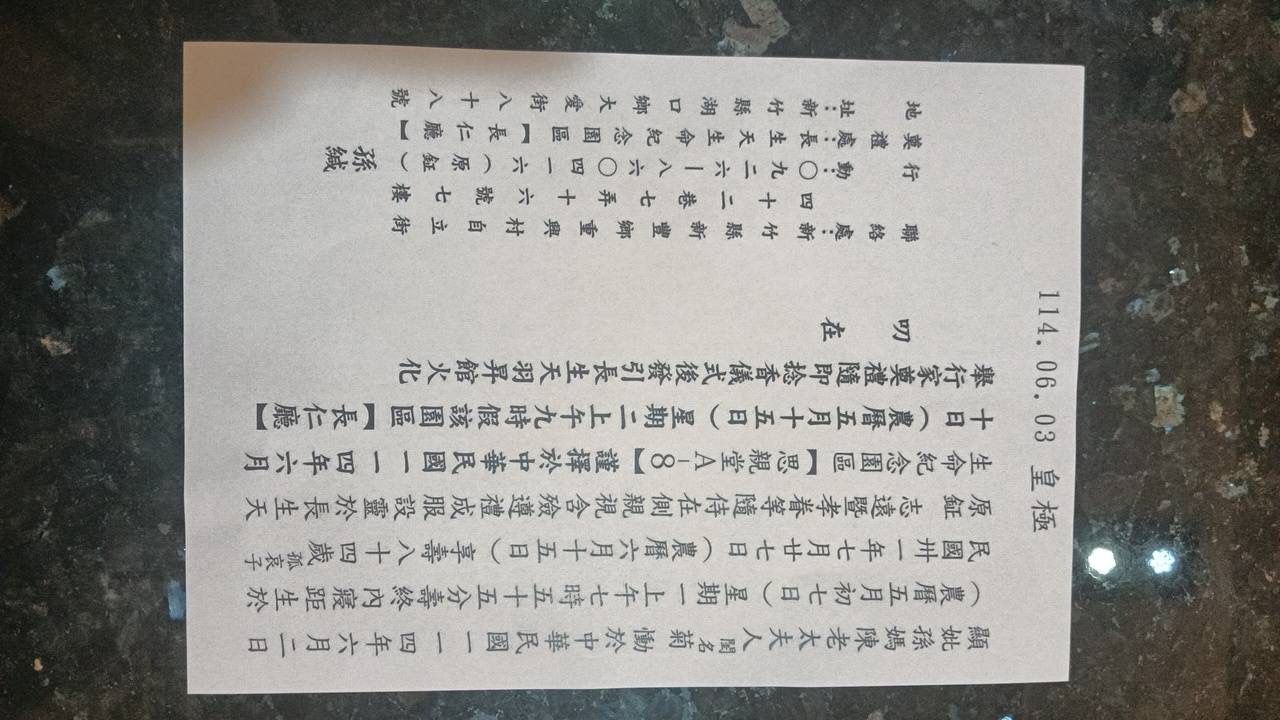 114.06.03 皇極
顯妣孫媽陳老太夫人閨名菊慟於中華民國一一四年六月二日
（農曆五月初七日）星期一上午七時五十五分壽終內寢距生於
民國卅一年七月廿七日（農曆六月十五日）享壽八十四歲孤哀子
原鉦志遠孝暨眷等隨侍在側親視含殮遵禮成服設靈於長生天
生命紀念園區【思親堂A-8】謹擇於中華民國一一四年六月
十日（農曆五月十五日）星期二上午九時假該園區【長仁廳】
舉行家奠禮隨即捻香儀式後發引長生天羽昇館火化
叨在
聯絡處：新竹縣新豐鄉重興村自立街
四十二巷七弄十六號七樓
行動：〇九二六－八六〇四一六（原鉦） 孫緘
奠禮處：長生天生命紀念園區【長仁廳】
地址：新竹縣湖口鄉大愛街八十八號